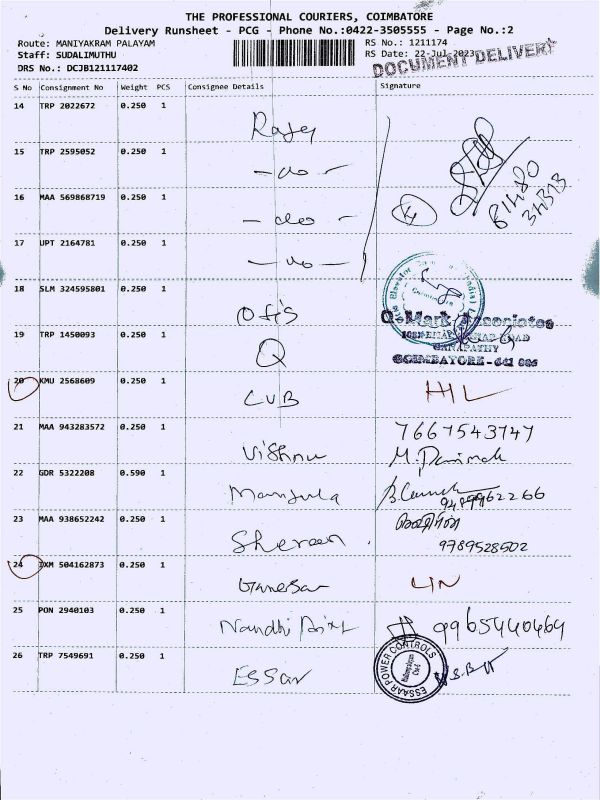 THE PROFESSIONAL COURIERS, COIMBATORE
Delivery Runsheet - PCG - Phone No.:0422-3505555 - Page No.:2
Route: MANIYAKRAM PALAYAM
RS No.: 1211174
Staff: SUDALIMUTHU
RS Date: 22-Jul-2023
DRS No.: DCJB121117402
DOCUMENT DELIVERY
S No Consignment No Weight PCS Consignee Details Signature
14 TRP 2022672 0.250 1
15 TRP 2595052 0.250 1 - do -
16 MAA 569868719 0.250 1 - do -
17 UPT 2164781 0.250 1 - do -
18 SLM 324595801 0.250 1 Otis
Q-Mark Associates
GANAPATHY
COIMBATORE - 641 006
19 TRP 1450093 0.250 1 Q
20 KMU 2568609 0.250 1 CUB
21 MAA 943283572 0.250 1 Vishnu 7667543747
22 GDR 5322208 0.590 1 Manjula 9489962266
23 MAA 938652242 0.250 1 Shereen 9789528502
24 DXM 504162873 0.250 1 Ganesan
25 PON 2940103 0.250 1 Nandhi 9965440469
26 TRP 7549691 0.250 1 Essar
ESSAAR POWER CONTROLS